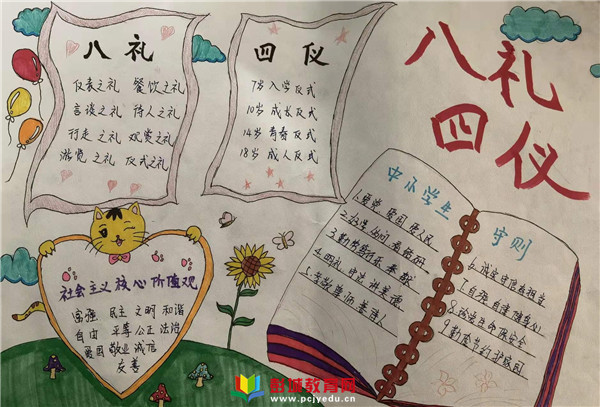 八礼
仪表之礼 餐饮之礼
言谈之礼 待人之礼
行走之礼 观赏之礼
游览之礼 仪式之礼
四仪
7岁入学仪式
10岁成长仪式
14岁青春仪式
18岁成人仪式
八礼
四仪
社会主义核心价值观
富强 民主 文明 和谐
自由 平等 公正 法治
爱国 敬业 诚信
友善
中小学生
1.爱党爱国爱人民
2.好学多问肯钻研
3.勤劳笃行乐奉献
4.明礼守法讲美德
5.孝敬尊师善待人
守则
6.诚实守信有担当
7.自强自律健身心
8.珍爱生命保安全
9.勤俭节约护家园
彭城教育网
www.pcjyedu.cn